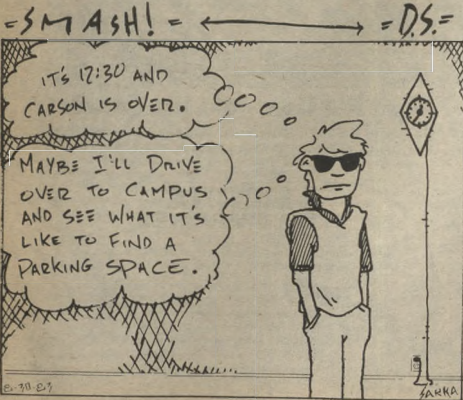 =SMASH!= ⟷ =D.S.=
IT'S 12:30 AND
CARSON IS OVER.
MAYBE I'LL DRIVE
OVER TO CAMPUS
AND SEE WHAT IT'S
LIKE TO FIND A
PARKING SPACE.
8-30-83
SAKKA